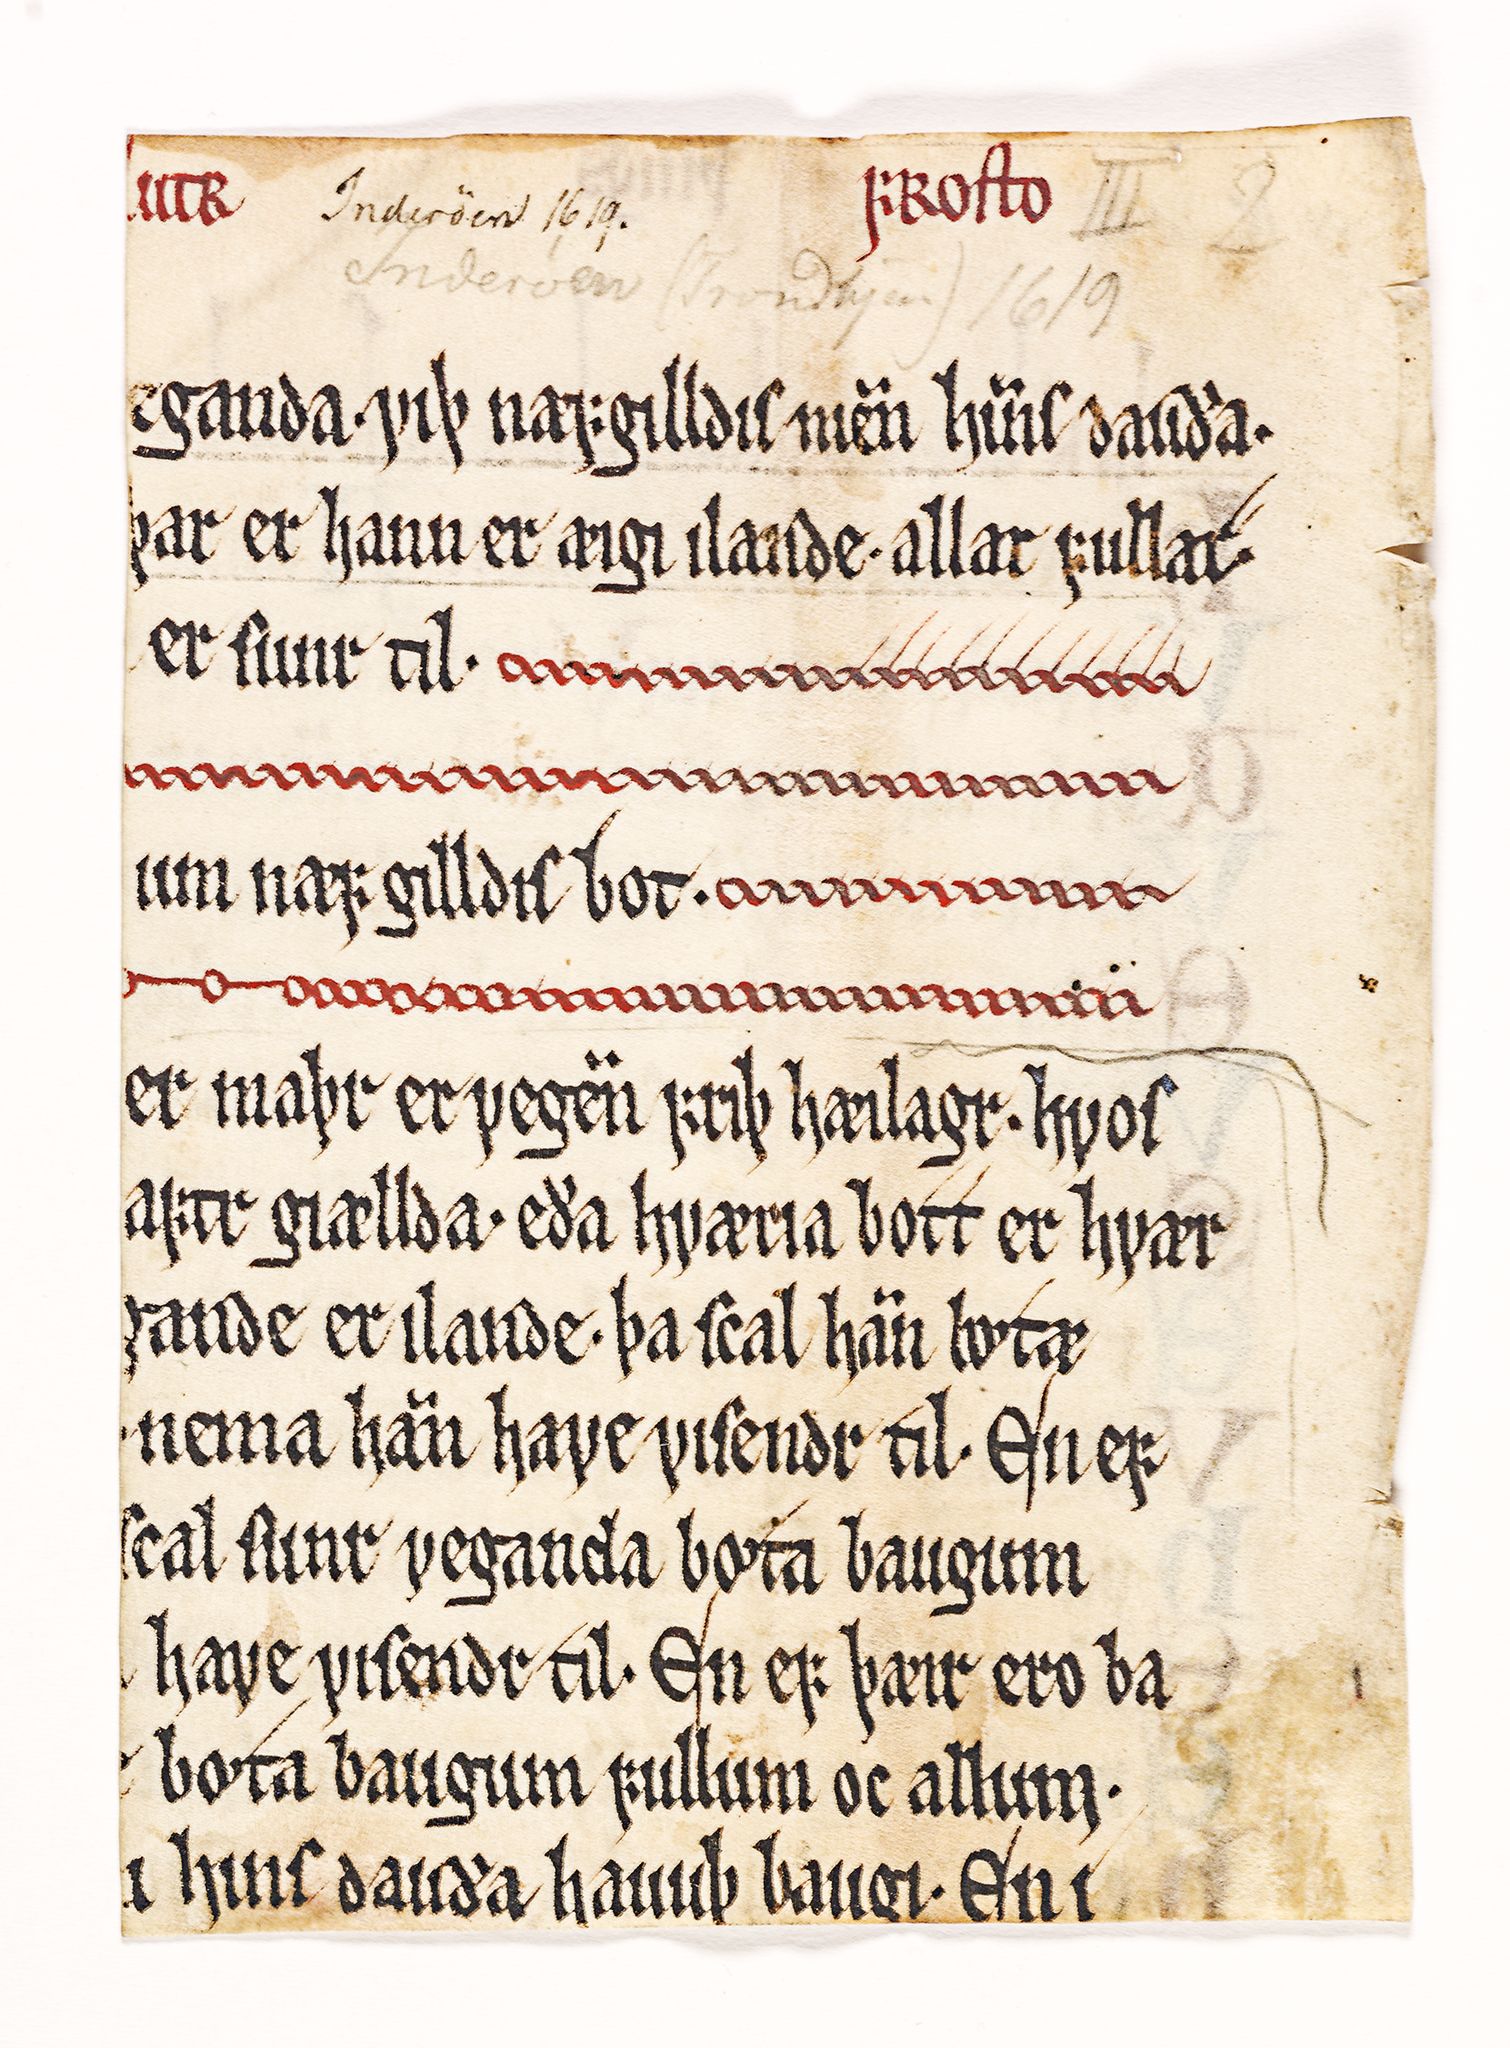 utr Inderöen 1619. ꝼrosto III 2
Inderöen (Trondhjem) 1619
eganda. ỿiþ næꝼgilldis men̈ hin̈s dauða.
þar er hann er æigi ilande. allar ꝼullar.
er sunr til.
um næꝼgilldis bot.
er maþr er ỿegen̈ ꝼriþ hæilagr. hỿos
aꝼtr giællda. eða hỿæria bott er hỿær
gande er ilande. þa scal han̈ bøtæ
nema han̈ haỿe ỿisendr til. En eꝼ
scal sunr ỿeganda bøta baugum
haỿe ỿisendr til. En eꝼ þæir ero ba
bøta baugum ꝼullum oc allum.
hins dauða hauuþ baugi. En i